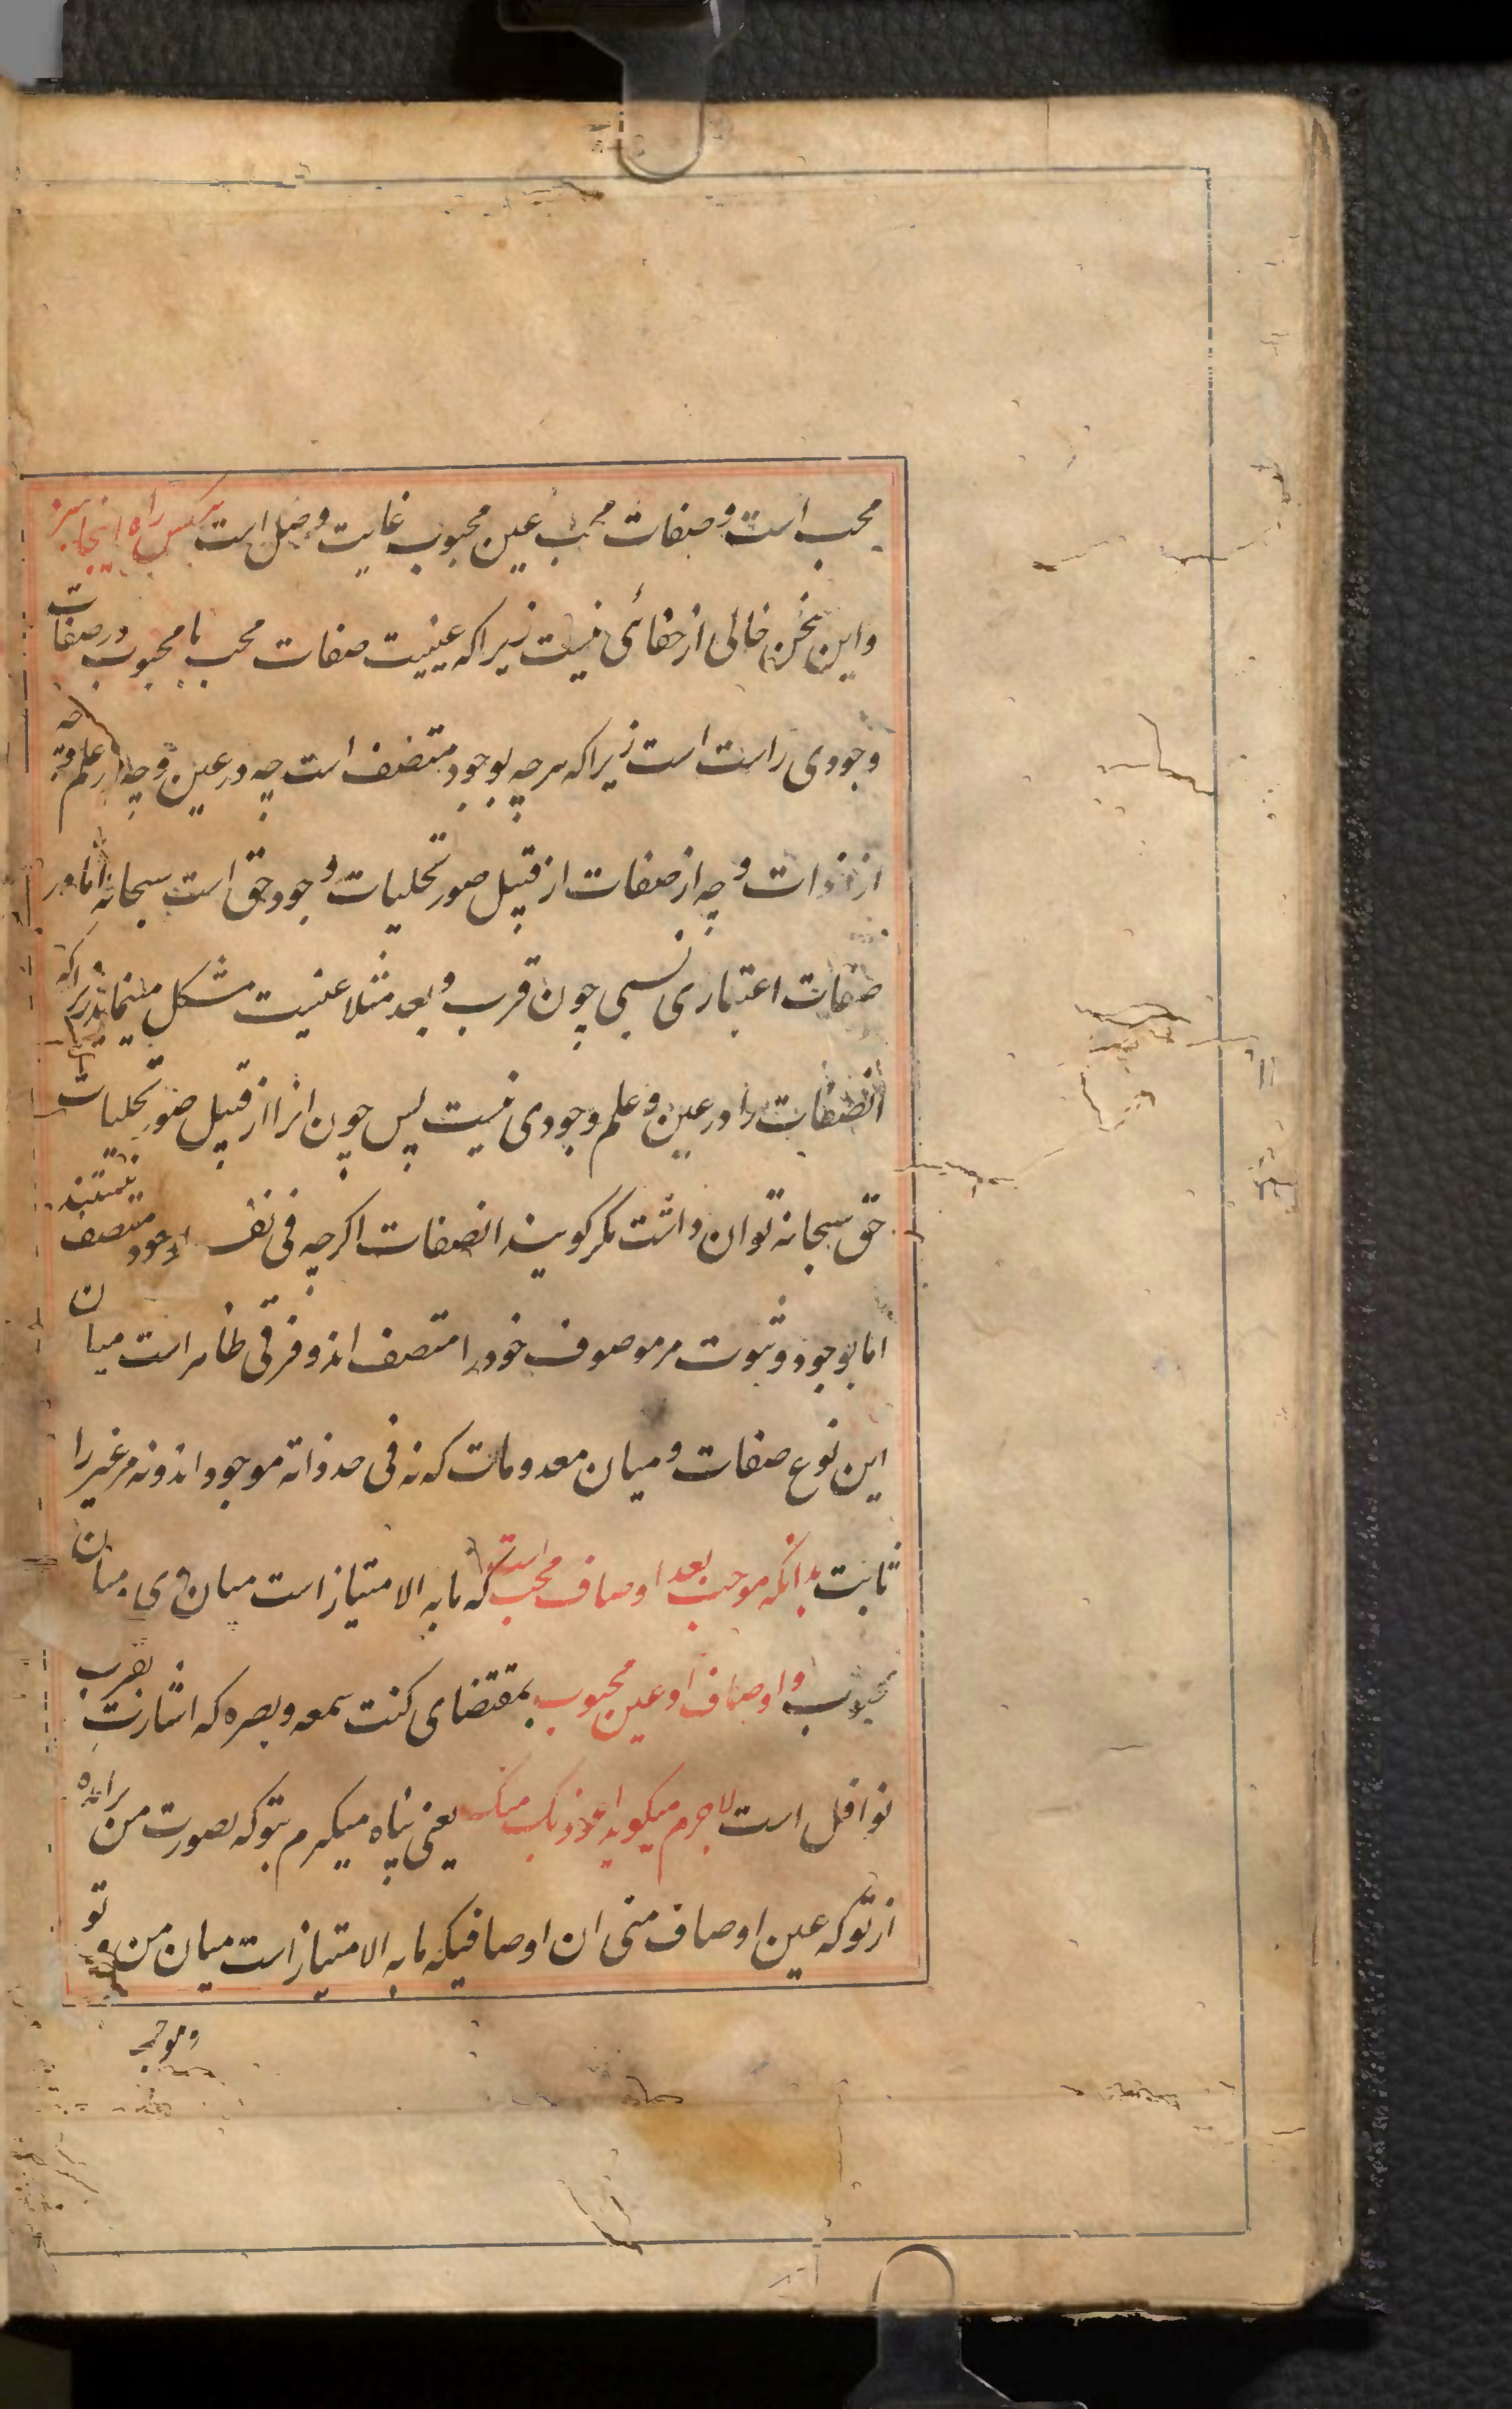 محب است و صفات محب عین محبوب غایت وصل است سرکس راه اینجا سز
و این سخن خالی از خفائی نیست زیرا که عینیت صفات محب با محبوب در صفات
وجودی راست است زیرا که هر چه بوجود متصف است چه در عین و چه در علم و چه
از ذوات و چه از صفات از قبیل صور تجلیات وجود حق است سبحانه اما در
صفات اعتباری نسبی چون قرب و بعد مثلا عینیت مشکل مینماید زیرا که
انصفات را در عین و علم وجودی نیست پس چون انرا از قبیل صور تجلیات
حق سبحانه توان داشت مگر گویند انصفات اگر چه فی نفس بوجود متصف نیستند
اما بوجود و ثبوت مر موصوف خود را متصف اند و فرقی ظاهر است میان
این نوع صفات و میان معدومات که نه فی حد ذاته موجود اند و نه مر غیر را
ثابت بدانکه موجب بعد اوصاف محب است که ما به الامتیاز است میان وی و میان
محبوب و اوصاف او عین محبوب بمقتضای کنت سمعه و بصره که اشارت بقرب
نوافل است لاجرم میگوید اعوذ بک منک یعنی پناه میگیرم بتو که بصورت من برامده
از تو که عین اوصاف منی ان اوصافیکه ما به الامتیاز است میان من و تو
و موجب